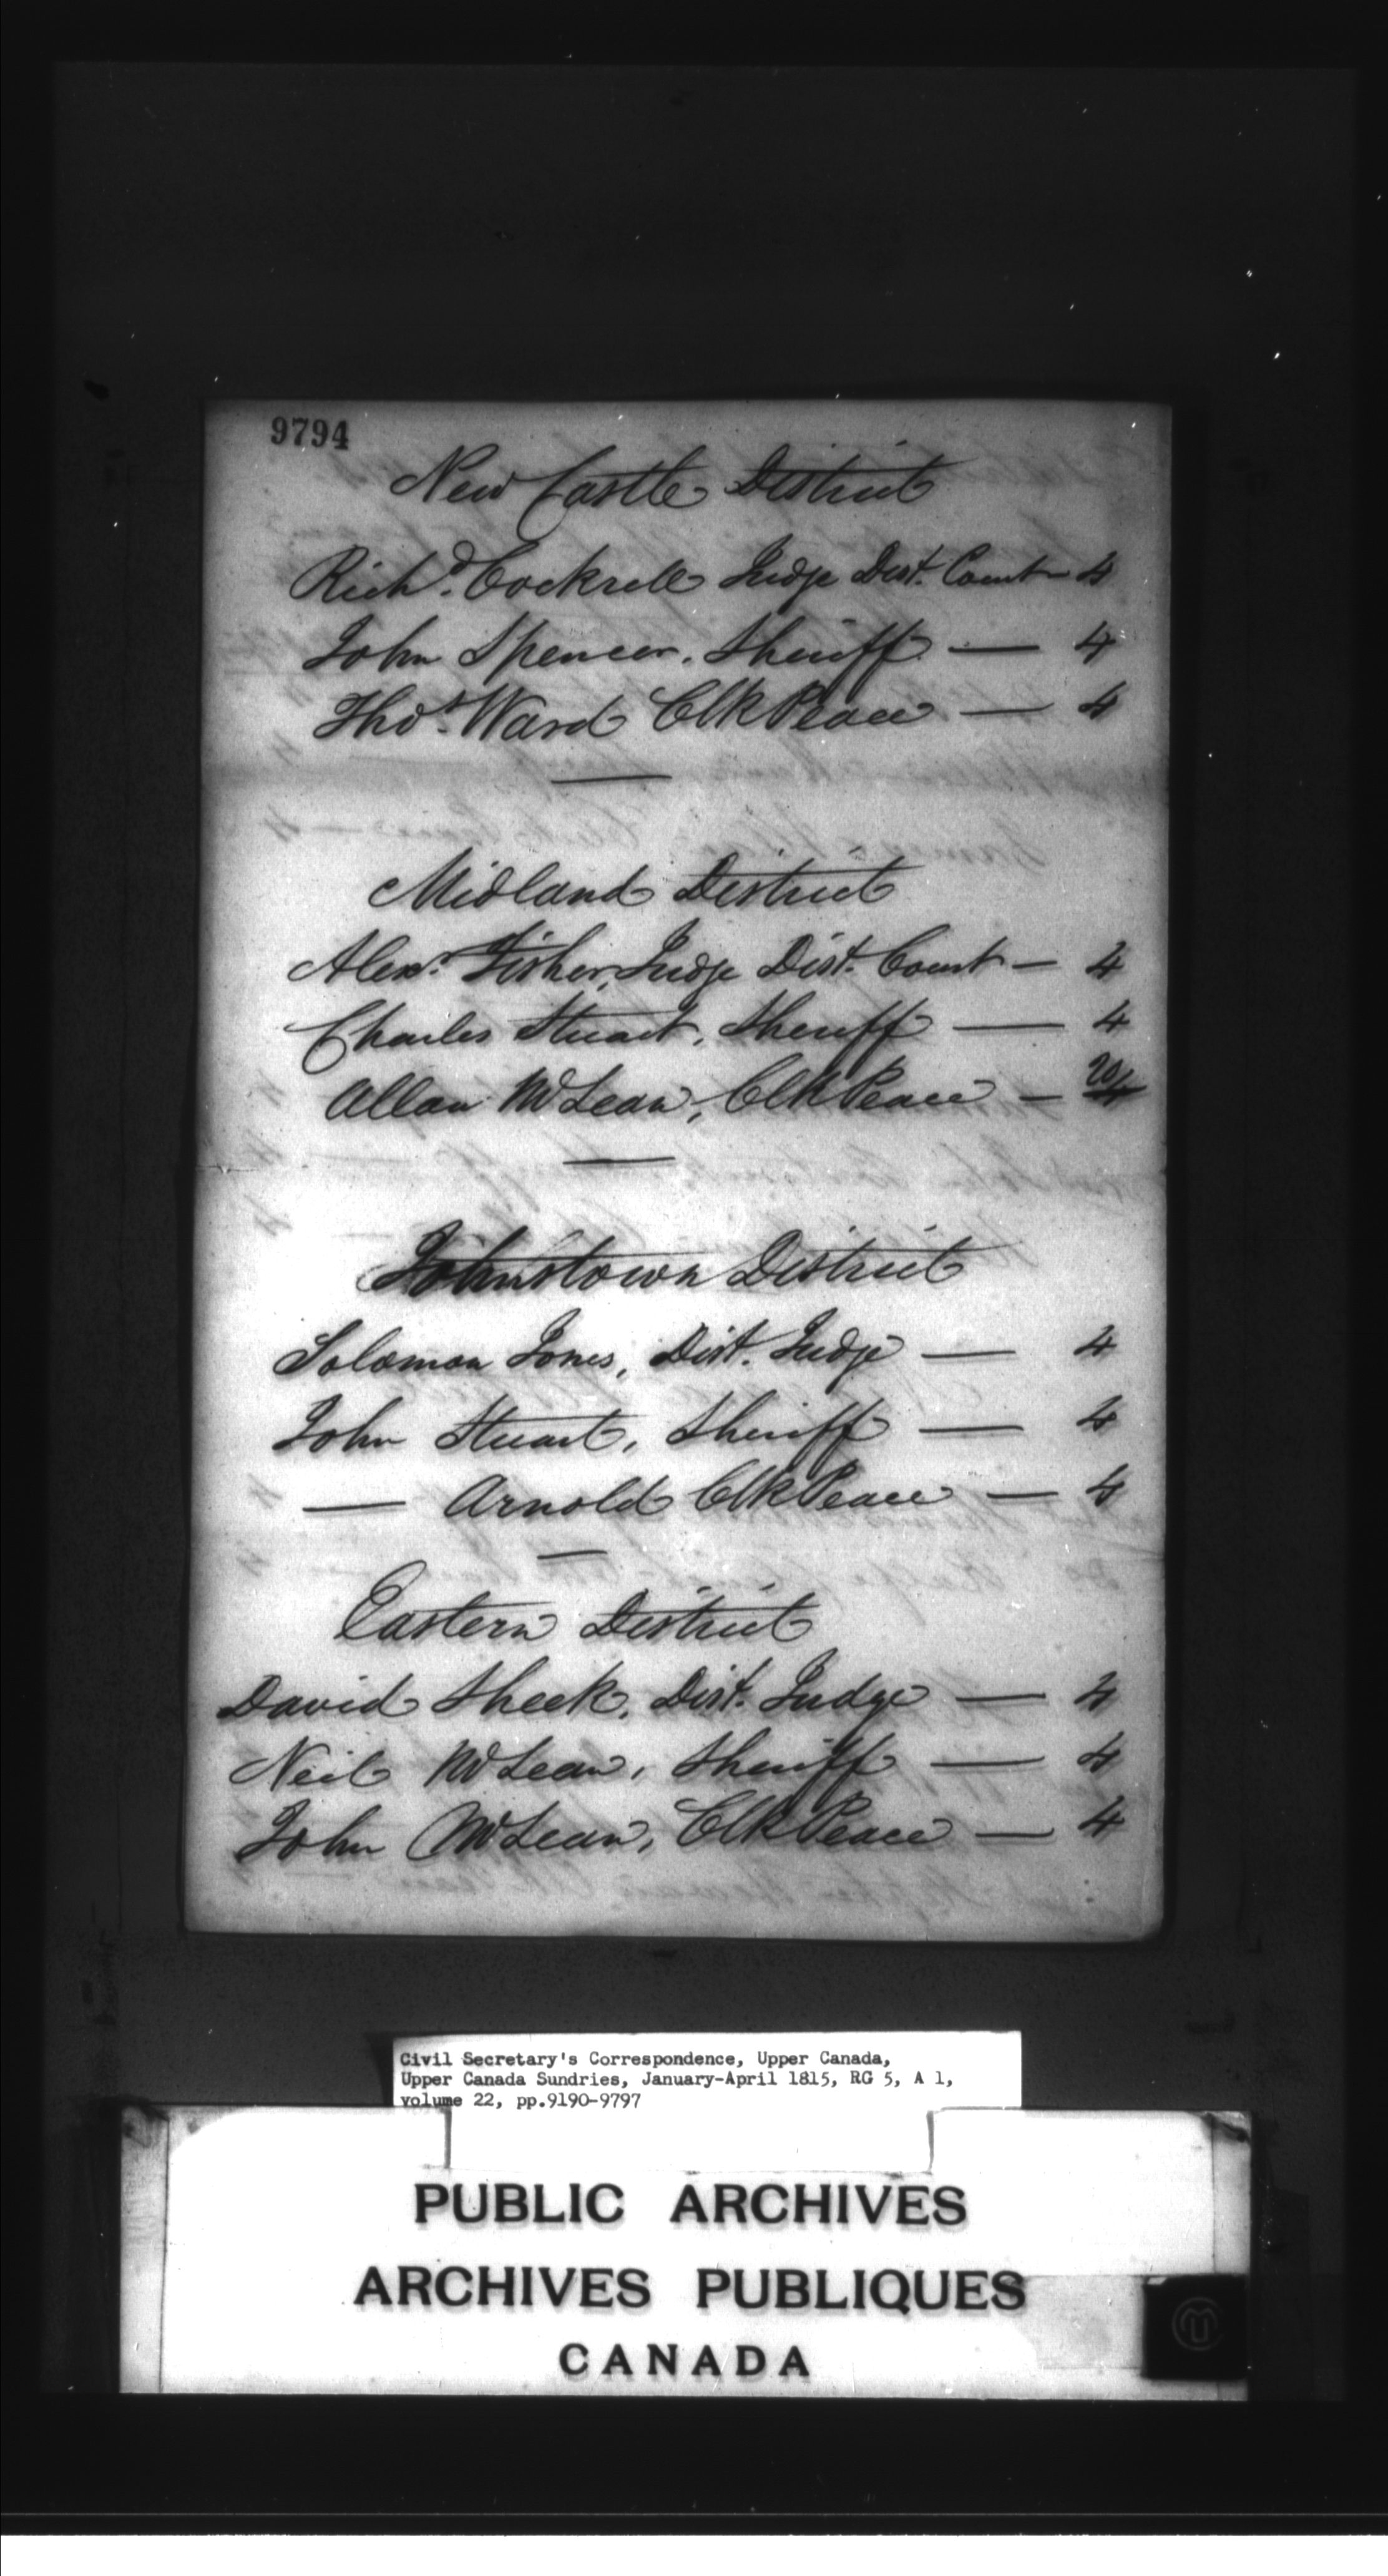 9794
New Castle District
Richd. Cockrell Judge Dist. Court 4
John Spencer, Sheriff — 4
Thos. Ward Clk Peace — 4
Midland District
Alexr. Fisher, Judge Dist. Court — 4
Charles Stuart, Sheriff — 4
Allan McLean, Clk Peace — 20 4
Johnstown District
Solomon Jones, Dist. Judge — 4
John Stuart, Sheriff — 4
— Arnold Clk Peace — 4
Eastern District
David Sheek, Dist. Judge — 4
Neil McLean, Sheriff — 4
John McLean, Clk Peace — 4
Civil Secretary's Correspondence, Upper Canada,
Upper Canada Sundries, January-April 1815, RG 5, A 1,
volume 22, pp.9190-9797
PUBLIC ARCHIVES
ARCHIVES PUBLIQUES
CANADA